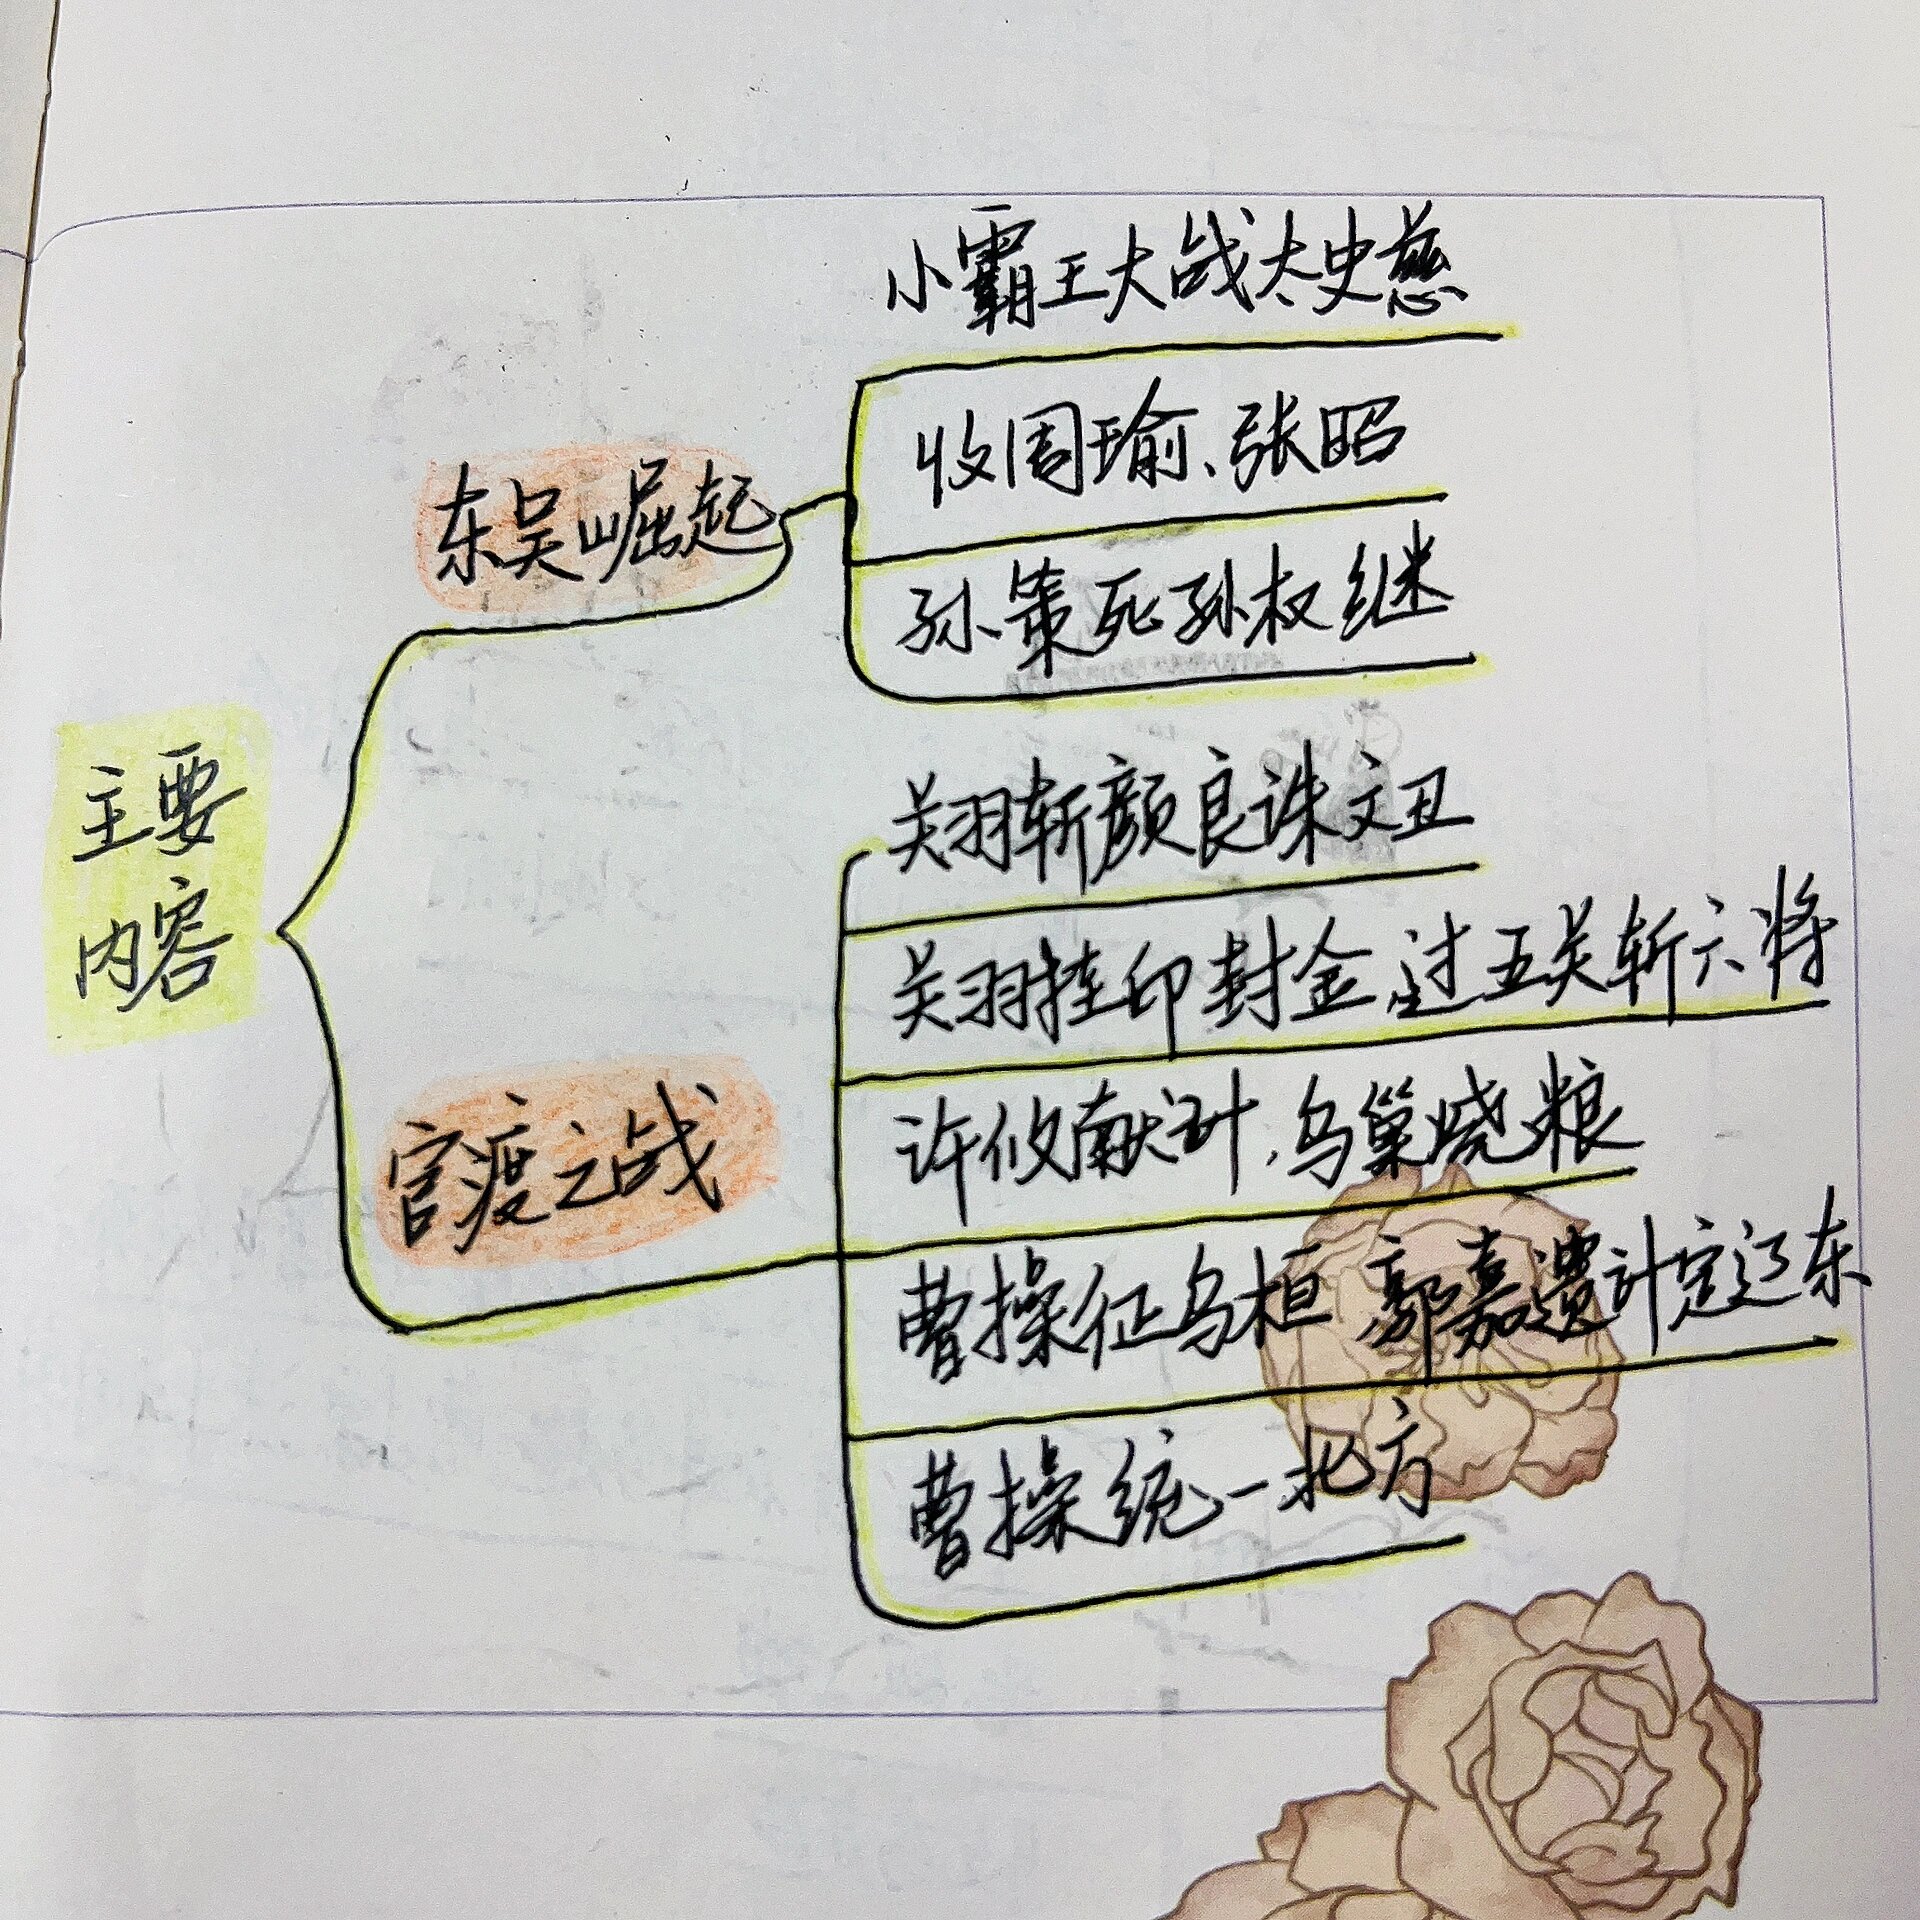 主要
内容
东吴崛起
小霸王大战太史慈
收周瑜、张昭
孙策死孙权继
官渡之战
关羽斩颜良诛文丑
关羽挂印封金 过五关斩六将
许攸献计，乌巢烧粮
曹操征乌桓 郭嘉遗计定辽东
曹操统一北方